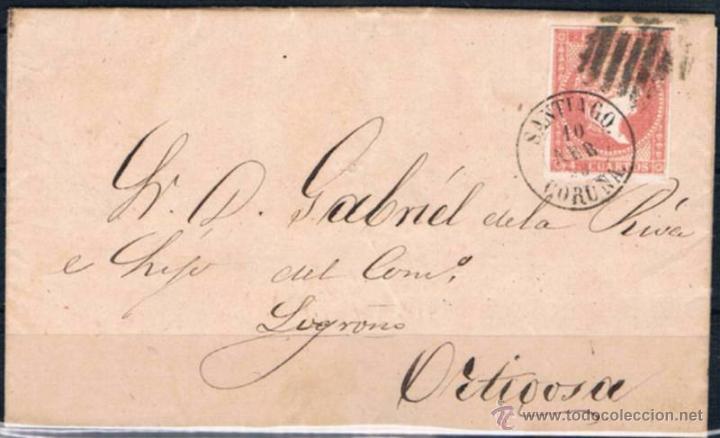 SANTIAGO.
10
CORUÑA
CUARTOS
Sr. D. Gabriel de la Riva
e hijo del Como.
Logroño
Ortigosa
todocoleccion
www.todocoleccion.net